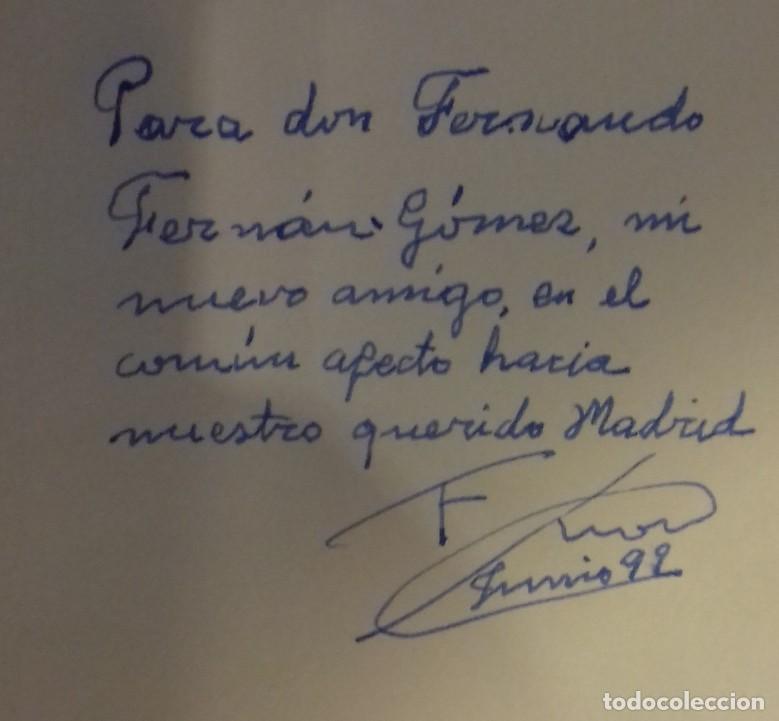 Para don Fernando
Fernán Gómez, mi
nuevo amigo, en el
común afecto hacia
nuestro querido Madrid
F
Junio 92
todocoleccion